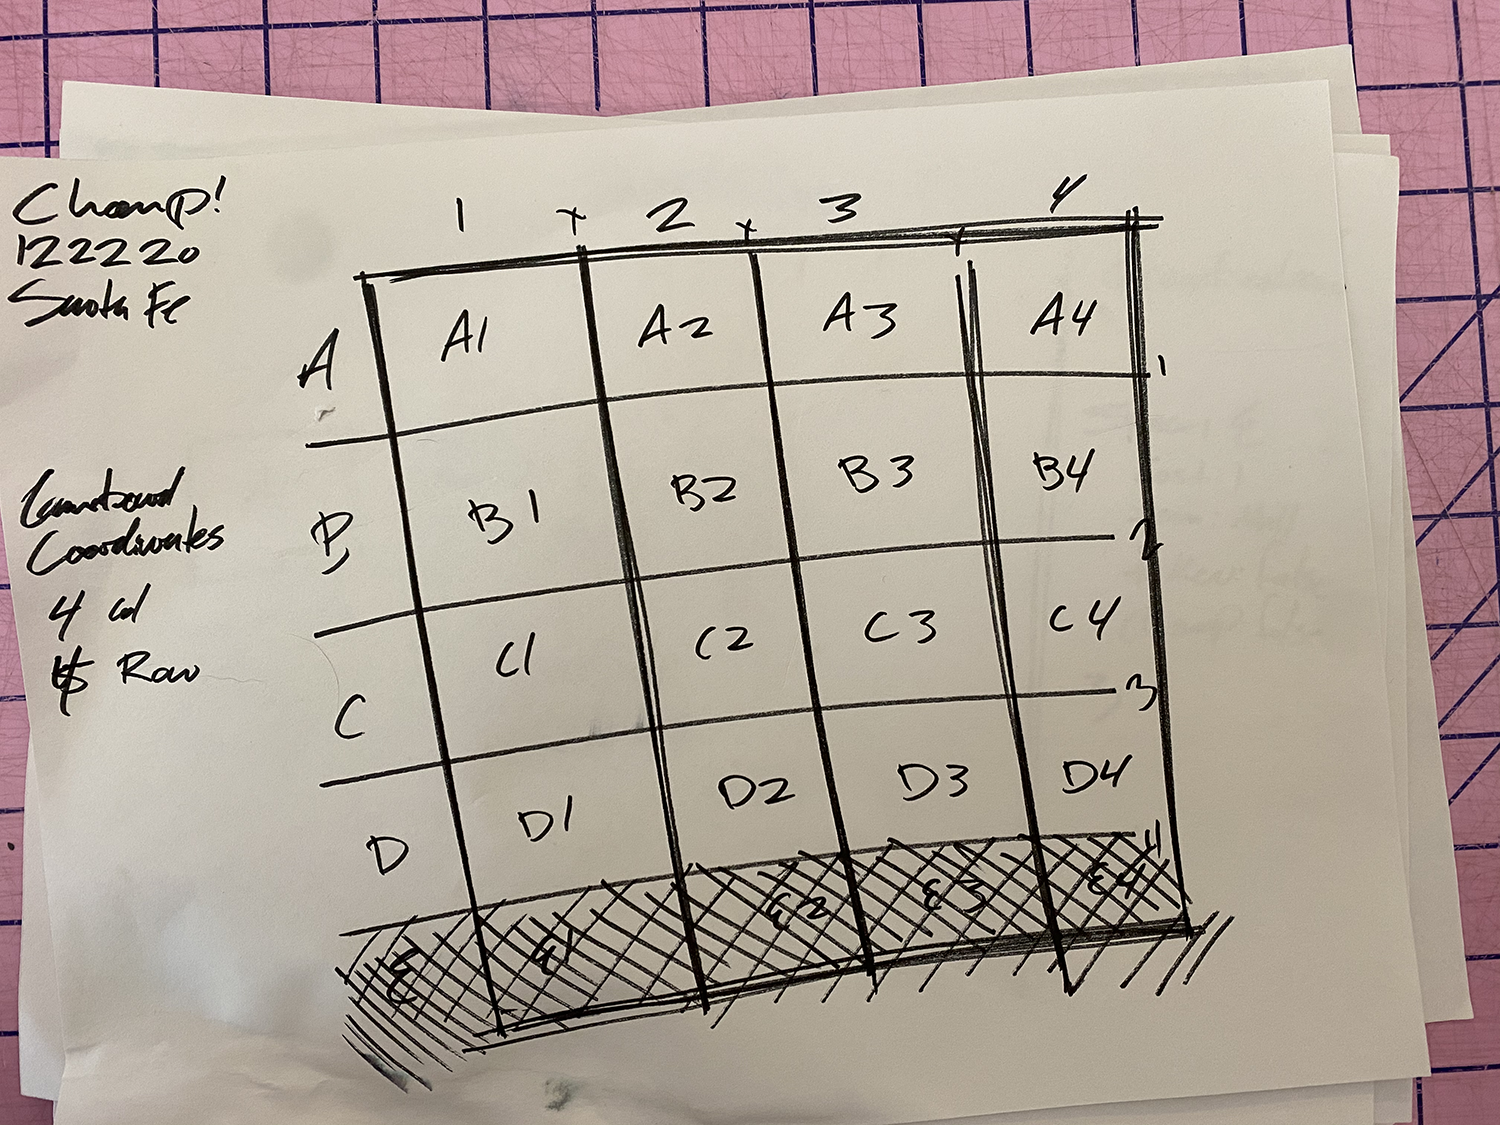 Chomp!
122220
Santa Fe
Gameboard
Coordinates
4 col
Row
1 2 3 4
A A1 A2 A3 A4 1
B B1 B2 B3 B4 2
C C1 C2 C3 C4 3
D D1 D2 D3 D4 4
E E1 E2 E3 E4